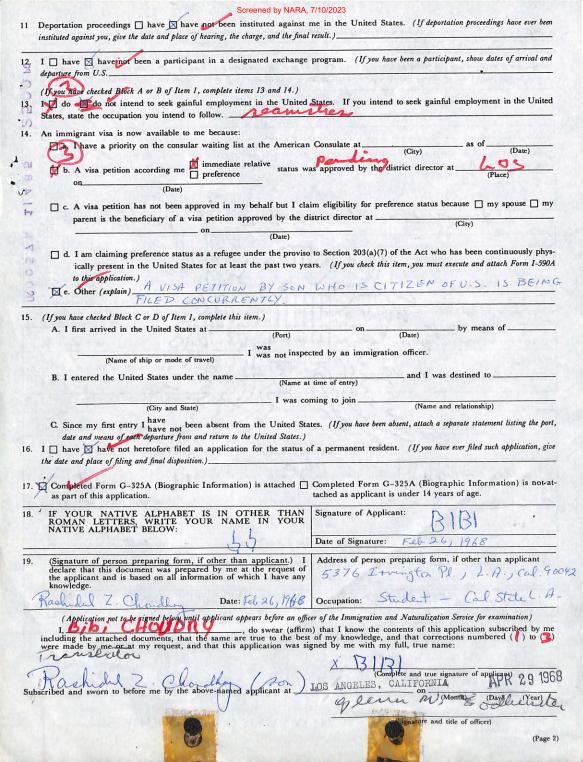 Screened by NARA, 7/10/2023
11 Deportation proceedings ☐ have ☒ have not been instituted against me in the United States. (If deportation proceedings have ever been
instituted against you, give the date and place of hearing, the charge, and the final result.)
12. I ☐ have ☒ have not been a participant in a designated exchange program. (If you have been a participant, show dates of arrival and
departure from U.S.
(If you have checked Block A or B of Item 1, complete items 13 and 14.)
3
13. I ☐ do ☒ do not intend to seek gainful employment in the United States. If you intend to seek gainful employment in the United
States, state the occupation you intend to follow. seamstress
14. An immigrant visa is now available to me because:
☐ a. I have a priority on the consular waiting list at the American Consulate at as of
(City) (Date)
3
☒ b. A visa petition according me ☒ immediate relative ☐ preference status was approved by the district director at Los
Pending
on (Place)
(Date)
☐ c. A visa petition has not been approved in my behalf but I claim eligibility for preference status because ☐ my spouse ☐ my
parent is the beneficiary of a visa petition approved by the district director at
(City)
on
(Date)
☐ d. I am claiming preference status as a refugee under the proviso to Section 203(a)(7) of the Act who has been continuously phys-
ically present in the United States for at least the past two years. (If you check this item, you must execute and attach Form I-590A
to this application.)
☒ e. Other (explain) A VISA PETITION BY SON WHO IS CITIZEN OF U.S. IS BEING
FILED CONCURRENTLY.
15. (If you have checked Block C or D of Item 1, complete this item.)
A. I first arrived in the United States at on by means of
(Port) (Date)
was
I was not inspected by an immigration officer.
(Name of ship or mode of travel)
B. I entered the United States under the name and I was destined to
(Name at time of entry)
I was coming to join
(City and State) (Name and relationship)
C. Since my first entry I have
have not been absent from the United States. (If you have been absent, attach a separate statement listing the port,
date and means of each departure from and return to the United States.)
16. I ☐ have ☒ have not heretofore filed an application for the status of a permanent resident. (If you have ever filed such application, give
the date and place of filing and final disposition.)
17. ☒ Completed Form G-325A (Biographic Information) is attached ☐ Completed Form G-325A (Biographic Information) is not at-
as part of this application. tached as applicant is under 14 years of age.
18. IF YOUR NATIVE ALPHABET IS IN OTHER THAN
ROMAN LETTERS, WRITE YOUR NAME IN YOUR
NATIVE ALPHABET BELOW:
Signature of Applicant:
BIBI
Date of Signature: Feb 26, 1968
19. (Signature of person preparing form, if other than applicant.) I
declare that this document was prepared by me at the request of
the applicant and is based on all information of which I have any
knowledge.
Rashidul Z. Choudhry Date: Feb 26, 1968
Address of person preparing form, if other than applicant
5376 Irvington Pl, L.A., Cal. 90042
Occupation: Student - Cal State L.A.
(Application not to be signed below until applicant appears before an officer of the Immigration and Naturalization Service for examination)
I, Bibi CHOUDRY, do swear (affirm) that I know the contents of this application subscribed by me
including the attached documents, that the same are true to the best of my knowledge, and that corrections numbered (1) to (3)
were made by me or at my request, and that this application was signed by me with my full, true name:
Translator
X BIBI
(Complete and true signature of applicant)
Rashidul Z. Choudhry (son)
Subscribed and sworn to before me by the above-named applicant at LOS ANGELES, CALIFORNIA on APR 29 1968
(Month) (Day) (Year)
Glenn
(Signature and title of officer)
(Page 2)